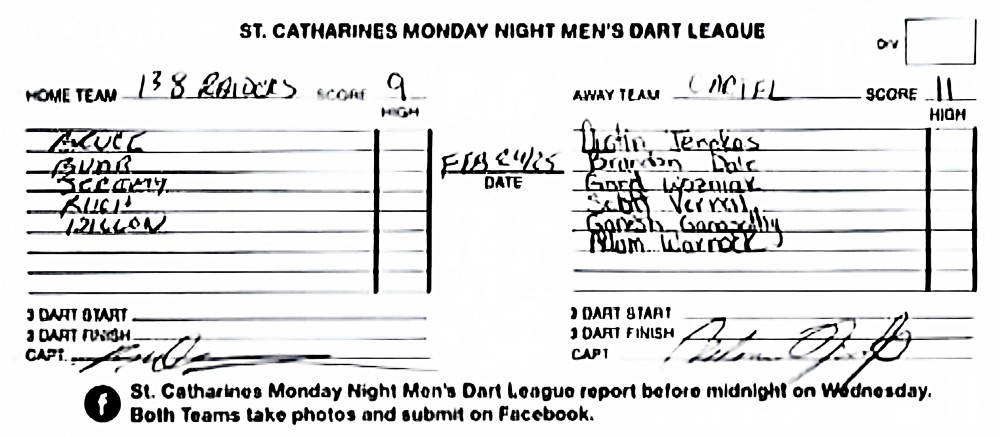 ST. CATHARINES MONDAY NIGHT MEN'S DART LEAGUE
DIV
HOME TEAM 138 RAIDERS SCORE 9
HIGH
AWAY TEAM CARTEL SCORE 11
HIGH
BRUCE
BUBB
JEREMY
RICH
DILLON
FEB 24/25
DATE
Brandon Dale
Gord Wozniak
Scott Verrall
Ganesh
Adam Warnock
3 DART START
3 DART FINISH
CAPT.
3 DART START
3 DART FINISH
CAPT
f
St. Catharines Monday Night Men's Dart League report before midnight on Wednesday.
Both Teams take photos and submit on Facebook.